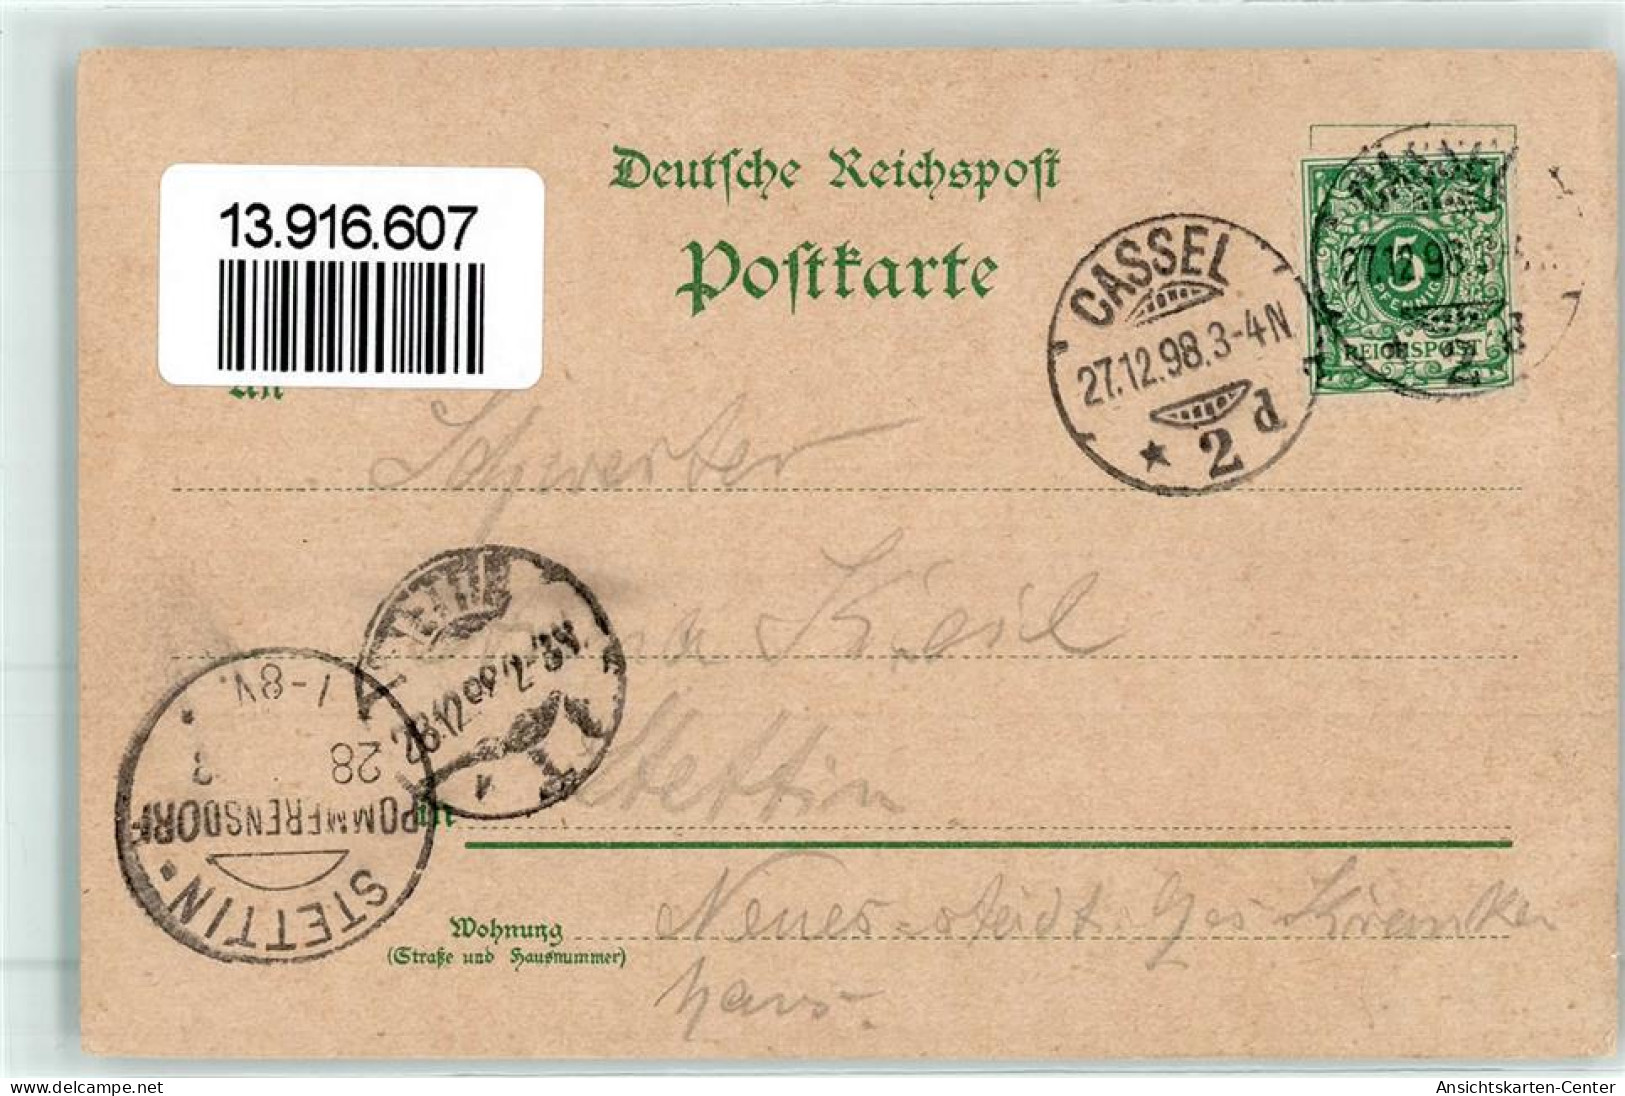 Deutsche Reichspost
Postkarte
13.916.607
An
CASSEL
27.12.98.3-4N
* 2 d
27.12.98.3-
5
PFENNIG
REICHSPOST
Schwester
Keil
Stettin
in
28.12.98.7-8V
1
STETTIN *
POMMERENSDORF
28
7-8V.
Wohnung
(Straße und Hausnummer)
Neues-städt. Kranken
haus.
delcampe.net
theodor-ak
Ansichtskarten-Center